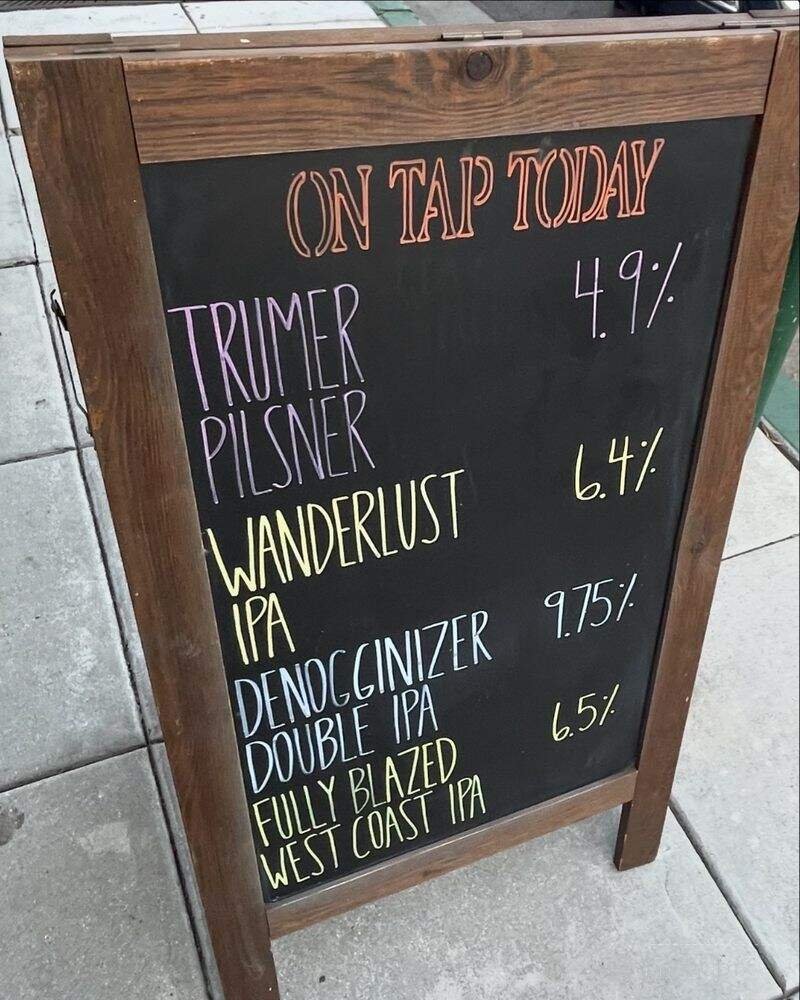 ON TAP TODAY
TRUMER 4.9%
PILSNER
WANDERLUST 6.4%
IPA
DENOGGINIZER 9.75%
DOUBLE IPA
FULLY BLAZED 6.5%
WEST COAST IPA